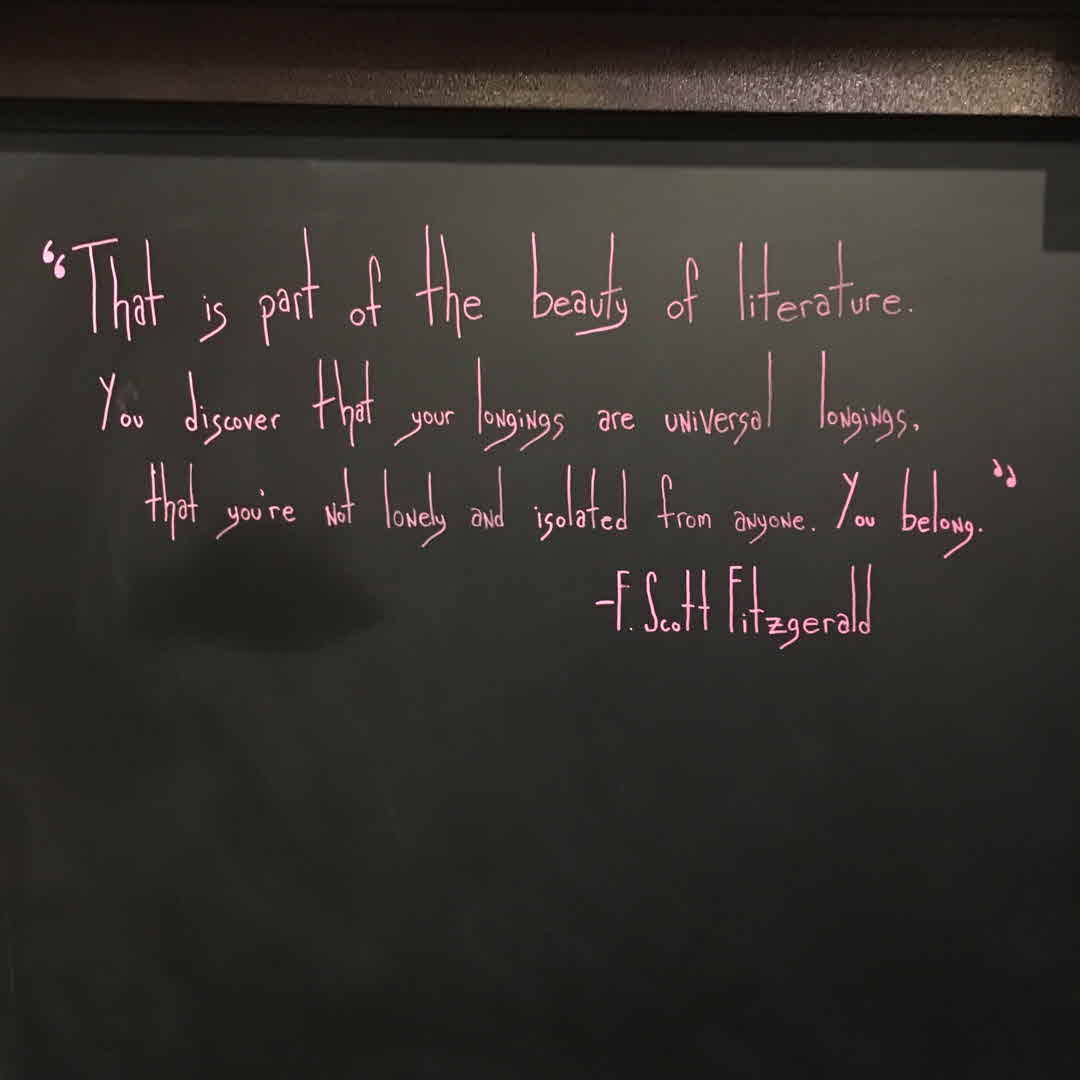 “That is part of the beauty of literature.
You discover that your longings are universal longings,
that you're not lonely and isolated from anyone. You belong.”
-F. Scott Fitzgerald